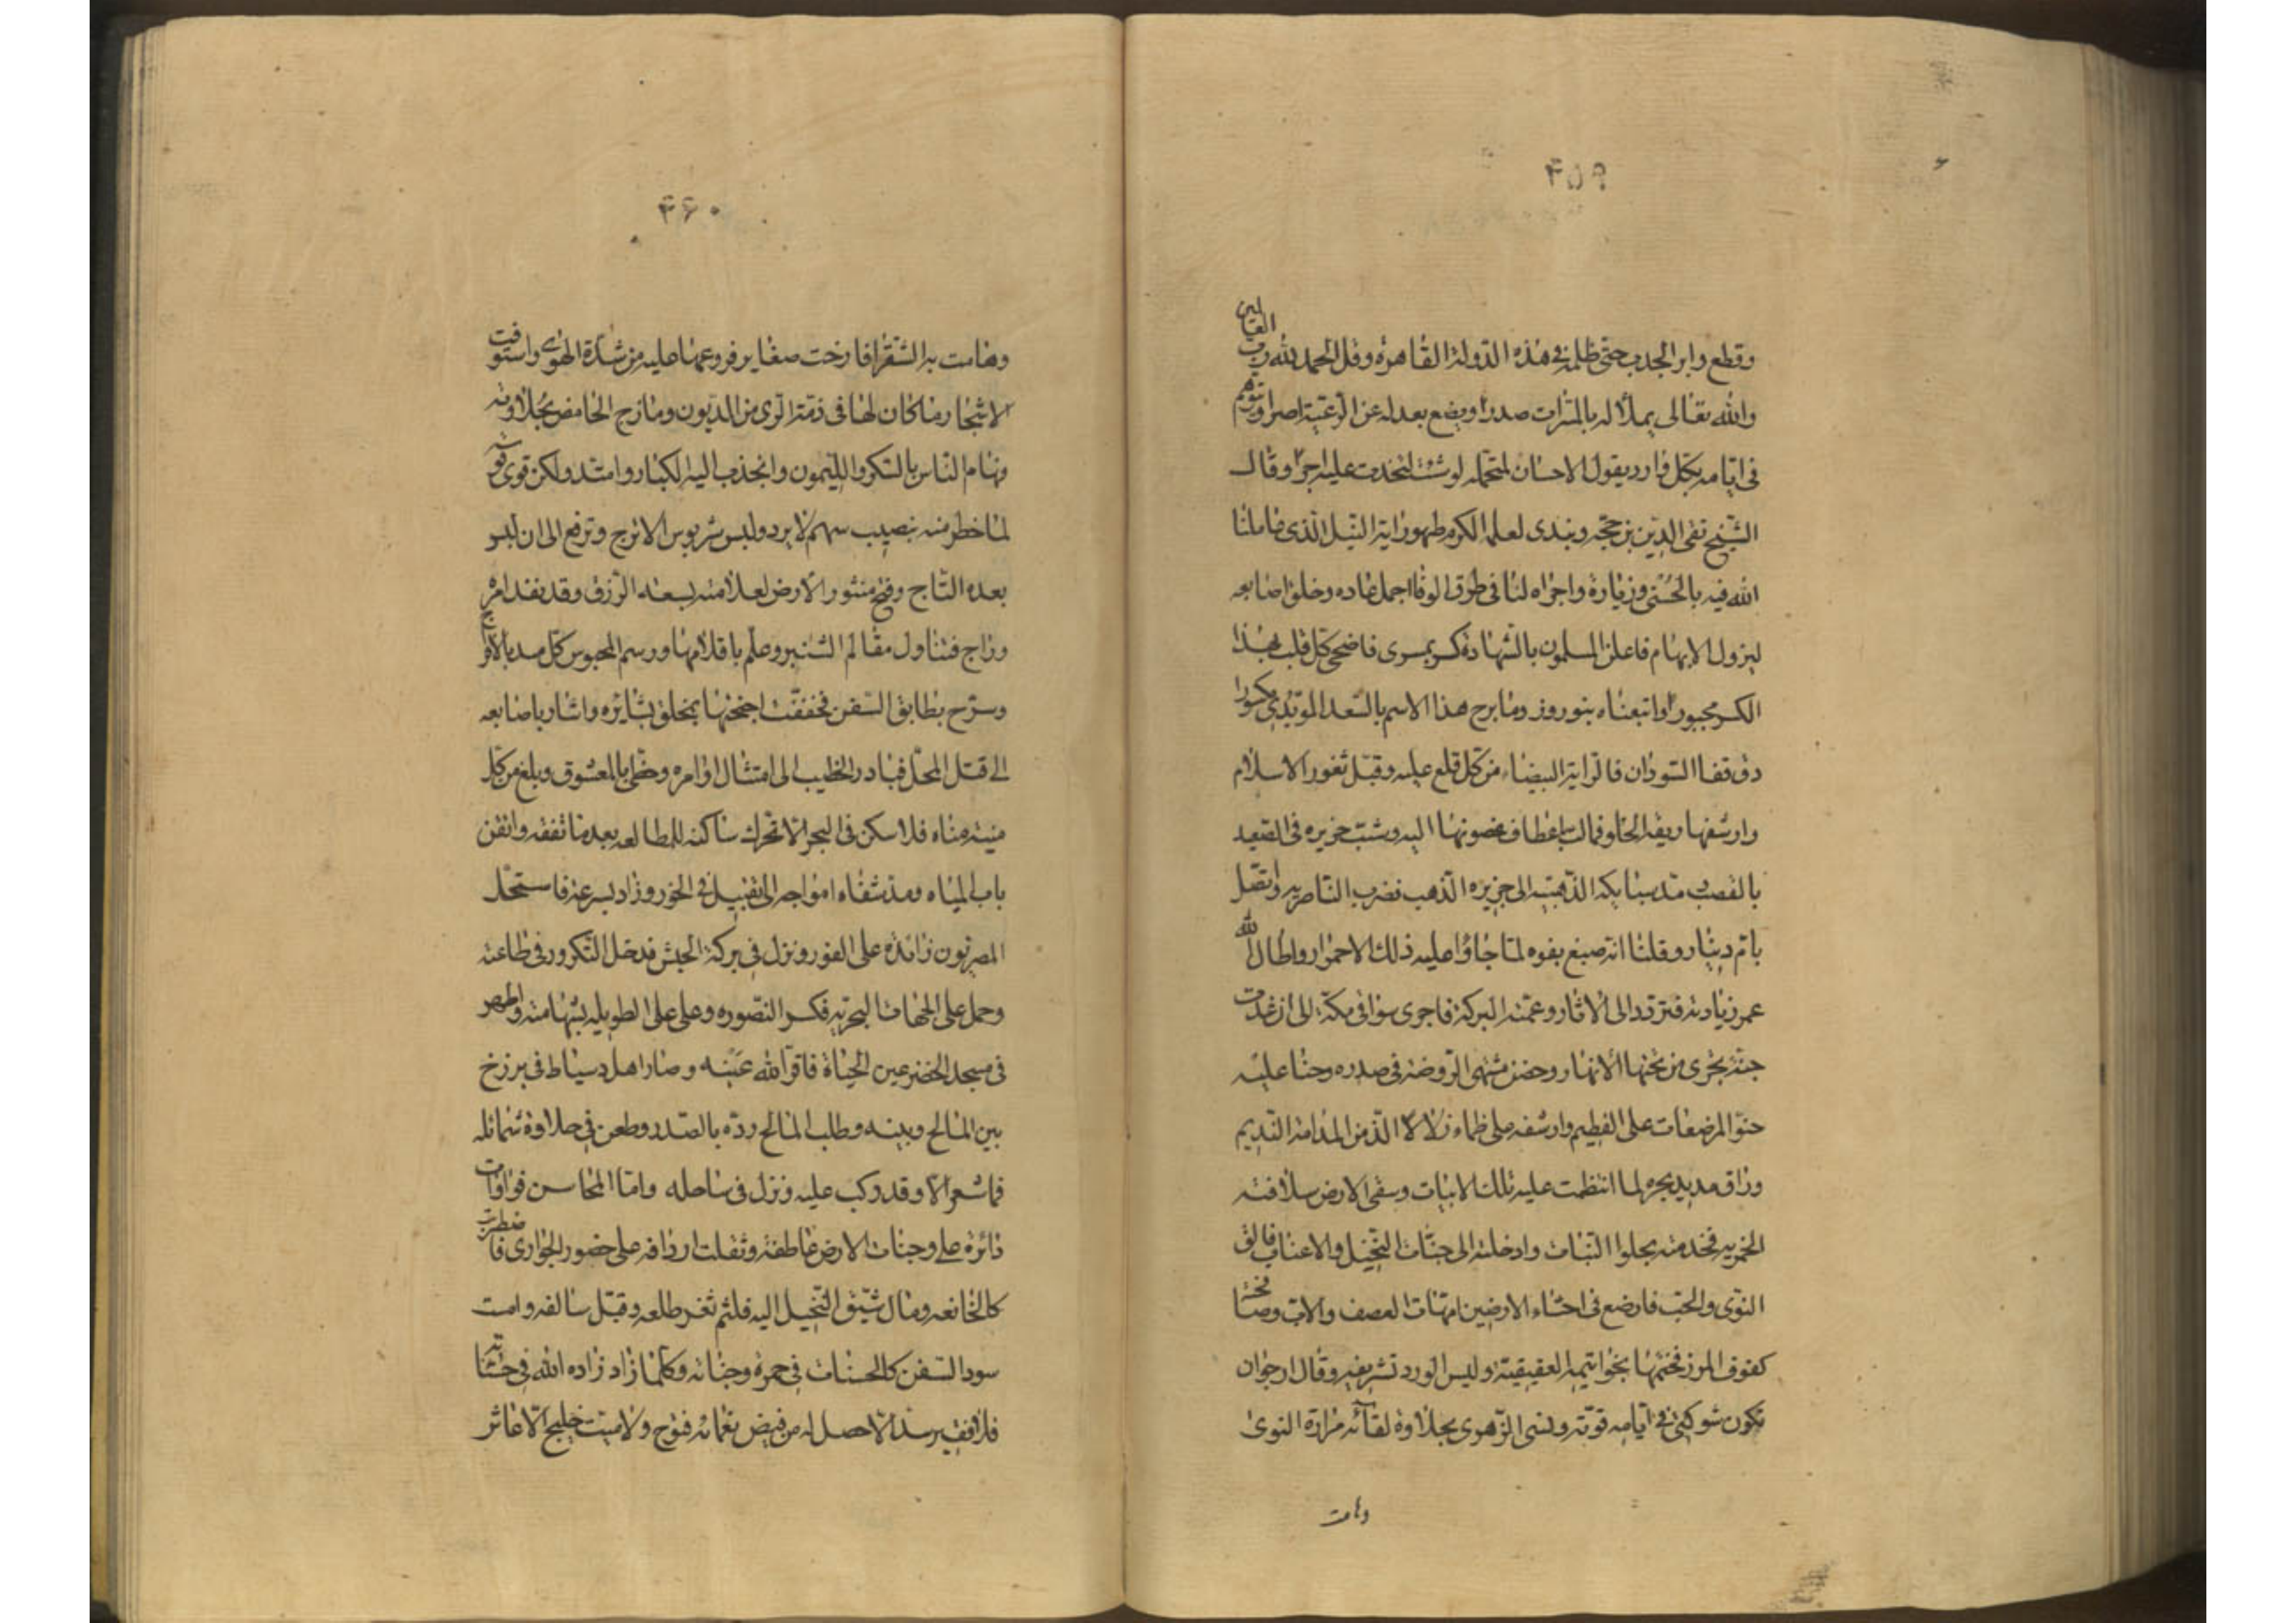 ۴۵۹
وقطع دابر الجدب حتى ظلمه فى هذه الدولة القاهرة وقل الحمد لله رب العالمين
والله تعالى يملأ له بالمسرات صدرا ويضع بعدله عن الرعية اصرا
فى ايامه بكل وارد يقول الاحسان لمتحمله لو شئت لتخذت عليه اجرا وقال
الشيخ تقى الدين بن حجه ونبدى لعلمه الكريم ظهور اية النيل الذى عاملنا
الله فيه بالحسنى وزيادة واجراه لنا فى طرق الوفا اجمل عاده وخلق اصابعه
ليزول الابهام فاعلن المسلمون بالشهادة كسر بمسرى فاضحى كل قلب بهذا
الكسر مجبورا واتبعناه بنوروز وما برح هذا الاسم بالسعد المؤيدى مكسورا
دق قفا السودان فالراية البيضاء من كل قلع عليه وقبل ثغور الاسلام
وارشفها ريقه الحلو فمالت باعطاف غصونها اليه وشبب خريره فى الصعيد
بالقصب ومد سبايكه الذهبية الى جزيره الذهب فضرب الناصريه واتصل
بام دينار وقلنا انه صبغ بقوه لما جاء وعليه ذلك الاحمرار واطال الله
عمر زيادته فتردد الى الاثار وعمته البركة فاجرى سواقى مكة الى ان غدت
جنة تجرى من تحتها الانهار وحضن مشتهى الروضة فى صدره وحنا عليه
حنو المرضعات على الفطيم وارشفه على ظماء زلالا الذ من المدامة النديم
وراق مديد بحره لما انتظمت عليه تلك الابيات وسقى الارض سلافته
الخمريه فخدمته بحلوا النبات وادخله الى جنات النخيل والاعناب فالق
النوى والحب فارضع فى احشاء الارضين امهات العصف والاب وصافحته
كفوف الموز فختمها بخواتيمه العقيقية ولبس الورد تشريفه وقال ارجو ان
تكون شوكتى فى ايامه قوية ونسى الزهر بحلاوة لقائه مرارة النوى
وهامت
۴۶۰
وهامت به الشقرا فارخت صفاير فروعها عليه من شدة الهوى واستوفت
الاشجار ما كان لها فى ذمة الرى من الديون ومازج الحامض بحلاوته
وهام الناس بالسكر والليمون وانجذب اليه الكباد وامتد ولكن قوى قوسه
لما حظى منه بنصيب سهم لا يرد ولبس شربوش الاترج وترفع الى ان لبس
بعده التاج وفتح منثور الارض لعلامته بسعه الرزق وقد نفذ امره
وراج فتناول مقالم الشنبر وعلم باقلامها ورسم لمحبوس كل سد بالافراج
وسرح بطايق السفن فخفقت اجنحتها بمخلق بشايره واشار باصابعه
الى قتل المحل فبادر الخطيب الى امتثال اوامره وحظى بالمعشوق وبلغ من كل
منيته مناه فلا سكن فى البحر الا تحرك ساكنه للمطالعه بعد ما تفقه واتقن
باب المياه ومد شفاه امواجه الى تقبيل فم الخور وزاد بسرعة فاستحلى
المصريون زائده على الفور ونزل فى بركة الحبش فدخل التكرور فى طاعته
وحمل على الجهات البحريه فكسر المنصوره وعلى على الطويله بشهامته واظهر
فى مسجد الخضر عين الحياة فاقر الله عينه وصار اهل دمياط فى برزخ
بين المالح وبينه وطلب المالح رده بالصدر وطعن فى حلاوة شمائله
فما شعر الا وقد ركب عليه ونزل فى ساحله واما المحاسن فواوات
دائرة على وجنات الارض عاطفة وثقلت اردافه على خضور الجوارى فاضطربت
كالخائفه ومال شيق النخيل اليه فلثم ثغر طلعه وقبل سالفه وامست
سود السفن كالحسنات فى حمرة وجناته وكلما زاد زاده الله فى حسناته
فلا فقير سد الا حصل له من فيض نعمائه فتوح ولا ميت خليج الا عاش